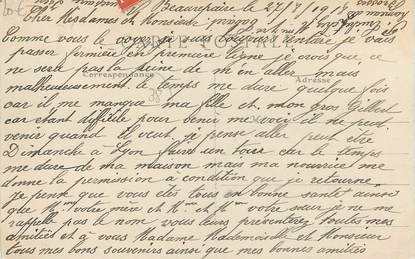 Beaurepaire le 27/7/1918
Cher Mesdames et Monsieur
Comme vous le voyez je suis toujours je vais
CARTE POSTALE
passer fermière en première ligne je crois que ce
ne sera pas la peine de m'en aller mais
Correspondance
Adresse
malheureusement le temps me dure quelque fois
car il me manque ma fille et mon gros Gilbert
car étant difficile pour venir me voir il ne peut
venir quand il veut je pense aller peut être
Dimanche à Lyon faire un tour car le temps
me dure de ma maison mais ma nourrice me
donne la permission à condition que je retourne
je pense que vous êtes tous en bonne santé
que votre mère et et votre sœur je ne me
rappelle pas le nom vous leurs présenterez toutes mes
amitiés et à vous Madame Mademoiselle et Monsieur
tous mes bons souvenirs ainsi que mes bonnes amitiés